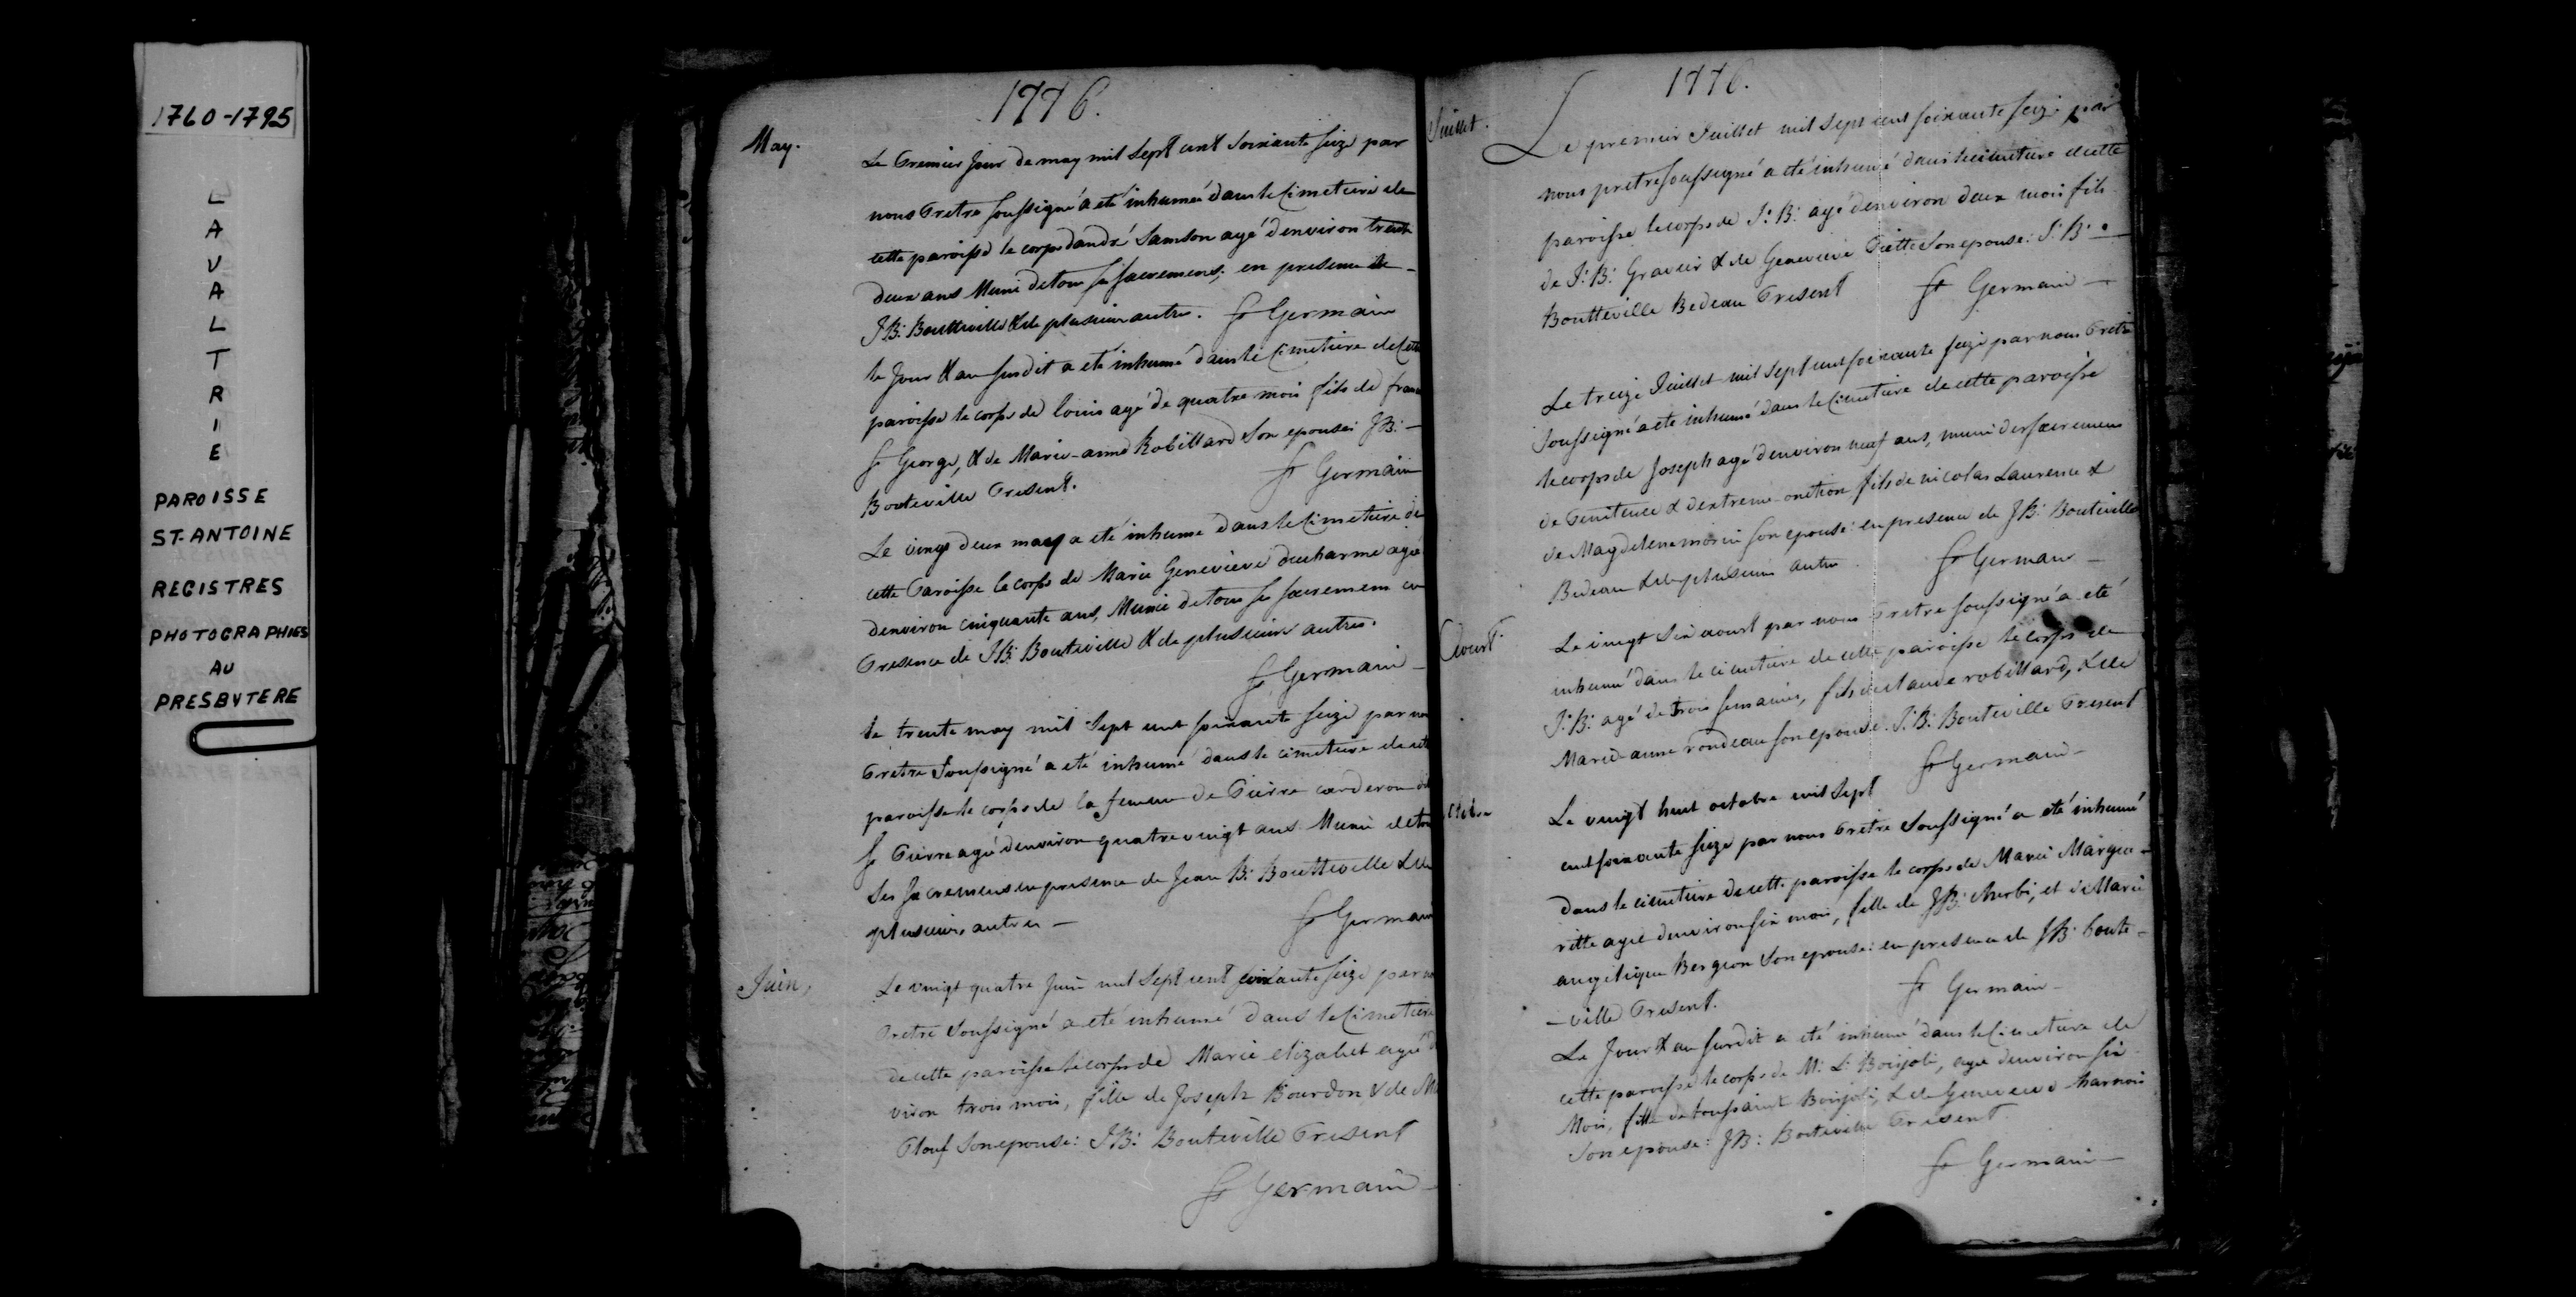 1760-1795
LAVALTRIE
PAROISSE
ST-ANTOINE
REGISTRES
PHOTOGRAPHIES
AU
PRESBYTERE
1776.
May.
Le Premier Jour de may mil Sept cent Soixante Seize par
nous Pretre Soussigné a eté inhumé dans le Cimetiere de
cette paroisse le corps dandré Samson agé d'environ trente
deux ans Muni de tous ses sacremens; en presence de
J.B: Boutteville & de plusieurs autres. fr Germain
le Jour & an susdit a eté inhumé dans le Cimetiere de Cette
paroisse le corps de louis agé de quatre mois fils de fran
St George, & de Marie-anne Robillard Son epouse: J.B:
Bouteville Present. fr Germain
Le vingt deux may a eté inhumé dans le Cimetiere de
cette Paroisse le corps de Marie Genevieve ducharme agée
denviron cinquante ans, Munie de tous ses sacremens en
Presence de J.B: Bouteville & de plusieurs autres.
fr Germain
Le trente may mil Sept cent soixante Seize par nous
Pretre Soussigné a eté inhumé dans le cimetiere de cette
paroisse le corps de la femme de Pierre carderon
St Pierre agée denviron quatre vingt ans Munie de tous
Ses Sacremens en presence de Jean B: Boutteville & de
plusieurs autres fr Germain
Juin,
Le vingt quatre Juin mil Sept cent soixante Seize par nous
Pretre Soussigné a eté inhumé dans le Cimetiere
de cette paroisse le corps de Marie elizabet agée d
viron trois mois, fille de Joseph Bourdon & de Ma
Plouf Son epouse: J.B: Bouteville Present
fr Germain
1776.
Juillet.
Le premier Juillet mil Sept cent soixante seize par
nous pretre soussigné a eté inhumé dans le cimetiere de cette
paroisse le corps de J: B: agé denviron deux mois fils
de J: B: Graveir & de Genevieve Piette Son epouse: J: B:
Boutteville Bedeau Present fr Germain
Le treize Juillet mil Sept cent soixante seize par nous Pretre
Soussigné a eté inhumé dans le Cimetiere de cette paroisse
le corps de Joseph agé denviron neuf ans, muni des sacremens
de Penitence & dextreme-onction fils de nicolas Laurence &
de Magdelene morin Son epouse: en presence de J.B: Bouteville
Bedeau & de plusieurs autres fr Germain
Aoust.
Le vingt Six aoust par nous Pretre soussigné a eté
inhumé dans le cimetiere de cette paroisse le corps de
J: B: agé de trois semaines, fils de claude robillard, & de
Marie-anne rondeau son epouse. J: B: Bouteville Present
fr Germain
Octobre
Le vingt huit octobre mil Sept
cent soixante Seize par nous Pretre Soussigné a eté inhumé
dans le cimetiere de cette paroisse le corps de Marie Margue-
ritte agée denviron six mois, fille de J.B: Aurbi, et de Marie
angelique Bergron Son epouse: en presence de J.B: Boute-
-ville Present. fr Germain
Le Jour & an susdit a eté inhumé dans le Cimetiere de
cette paroisse le corps de M: L: Boujoli, agée denviron six
Mois, fille de toussaint Boujoli, & de Genevieve harnois
Son epouse: J.B: Bouteville Present
fr Germain